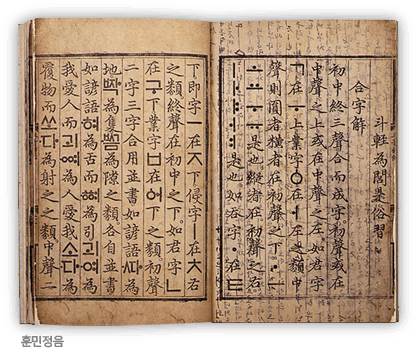 斗輕為閭是俗習
合字解
初中終三聲合而成字初聲或在
中聲之上或在中聲之左如君字
ㄱ在ㅜ上業字ㆁ在ㅓ左之類中
聲則圓者橫者在初聲之下ㆍㅡ
ㅗㅛㅜㅠ是也縱者在初聲之右
ㅣㅏㅑㅓㅕ是也如呑字ㆍ在ㅌ
下即字ㅡ在ㅈ下侵字ㅣ在ㅊ右
之類終聲在初中之下如君字ㄴ
在구下業字ㅂ在어下之類初聲
二字三字合用並書如諺語ᄯᅡ為
地ᄧᅡᆨ為隻ᄢᅳᆷ為隙之類各自並書
如諺語혀為舌而ᅘᅧ為引괴여為
我愛人而괴ᅇᅧ為人愛我소다為
覆物而쏘다為射之之類中聲二
훈민정음